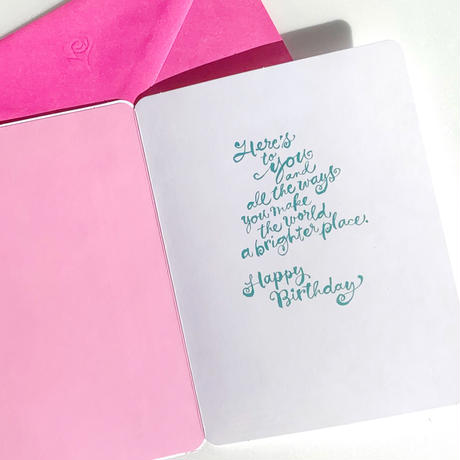 Here's
to
you
and
all the ways
you make
the world
a brighter place.
Happy
Birthday